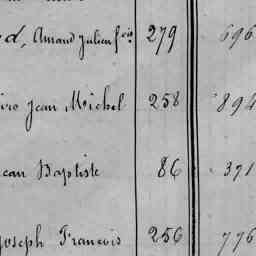 d, Amand Julien fois 279 696
Jean Michel 258 894
Baptiste 86 371
Joseph Francois 256 776